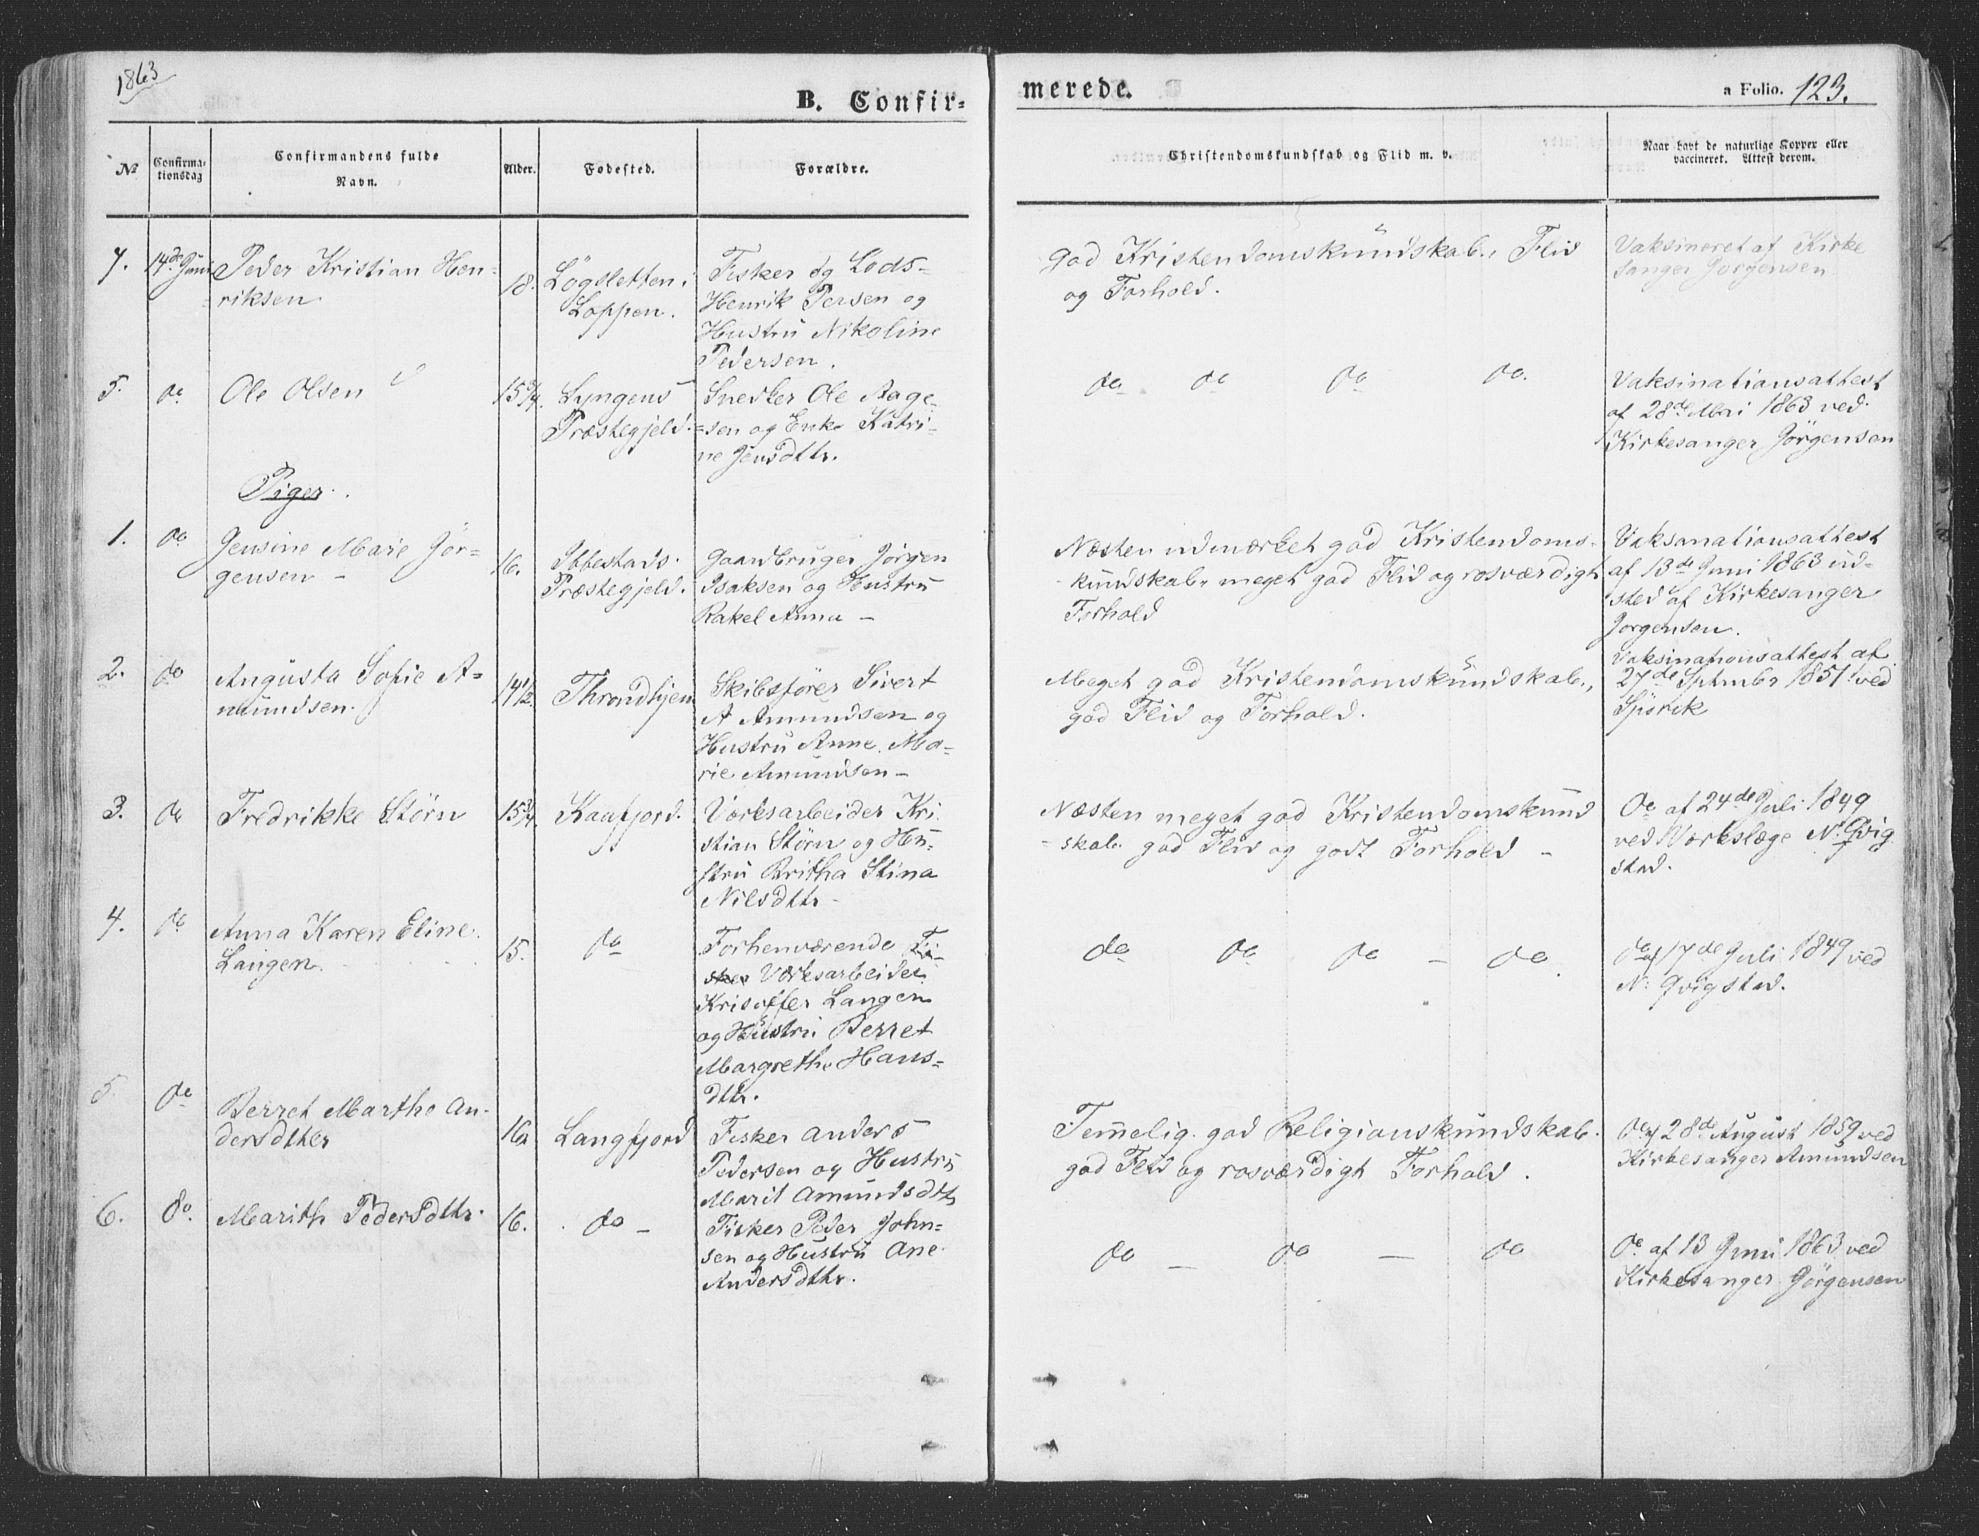 1863
B. Confir-
merede.
a Folio. 123.
No
Confirma-
tionsdag
Confirmandens fulde
Navn.
Alder.
Fødested.
Forældre.
Christendomskundskab og Flid m. v.
Naar havt de naturlige Kopper eller
vaccineret. Attest derom.
4. 14de Juni Peder Kristian Hen-
riksen
18. Lögsletten i
Loppen.
Fisker og Lods-
Henrik Persen og
Hustru Nikoline
Pedersen.
god Kristendomskundskab, Flid
og Forhold.
Vaksineret af Kirke
sanger Jorgensen
5. do Ole Olsen
15 3/4. Lyngens
Præstegjeld.
Snedker Ole Aage-
sen og Enke Katri-
ne Jensdttr.
do do do do.
Vaksinationsattest
af 28de Mai 1863 ved
Kirkesanger Jörgensen
Piger.
1. do Jensine Marie Jör-
gensen -
16. Ibbestads
Præstegjeld.
Gaardbruger Jörgen
Isaksen og Hustru
Rakel Anna -
Næsten udmærket god Kristendoms-
kundskab, meget god Flid og rosværdigt
Forhold
Vaksanationsattest
af 13de Juni 1863 ud-
sted af Kirkesanger
Jorgensen.
2. do Augusta Sofie A-
mundsen.
14 1/2. Throndhjem
Skibsfører Sivert
A Amundsen og
Hustru Anne Ma-
rie Amundsen -
Meget god Kristendomskundskab,
god Flid og Forhold.
Vaksinationsattest af
27de Sptmbr 1851 ved
3. do Fredrikke Störn
15 3/4. Kaafjord.
Værksarbeider Kri
stian Störn og Hu-
stru Britha Stina
Nilsdttr -
Næsten meget god Kristendomskund
-skab. god Flid og godt Forhold -
Do af 24de Juli 1849
ved Værkslæge N. Qvig
stad.
4. do Anna Karen Eline
Langen.
15. do
Forhenværende Fi-
sker Værksarbeider
Krisoffer Langen
og Hustru Berret
Margrethe Hans-
dttr.
do do do - do.
do af 17de Juli 1849 ved
N: Qvigstad.
5. do Berret Marthe An-
dersdtter
16. Langfjord
Fisker Anders
Pedersen og Hustru
Marit Amundsdtr
Temmelig god Religionskundskab.
god Flid og rosværdigt Forhold.
Do af 28de August 1859 ved
Kirkesanger Amundsen
6. do. Marith Pedersdttr.
16. do -
Fisker Peder John-
sen og Hustru Ane
Andersdttr.
do - do - do
Do af 13 Juni 1863 ved
Kirkesanger Jörgensen